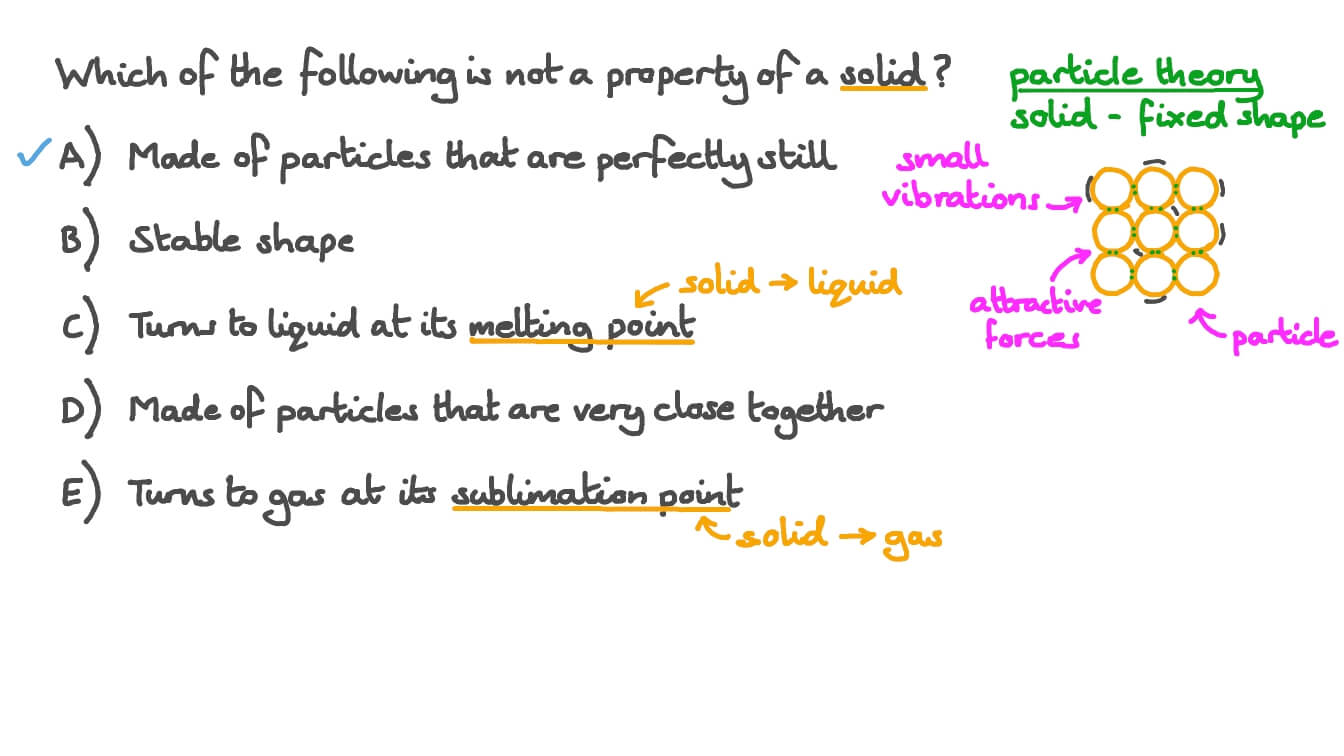 Which of the following is not a property of a solid?
A) Made of particles that are perfectly still
B) Stable shape
C) Turns to liquid at its melting point
solid → liquid
D) Made of particles that are very close together
E) Turns to gas at its sublimation point
solid → gas
particle theory
solid - fixed shape
small
vibrations
attractive
forces
particle